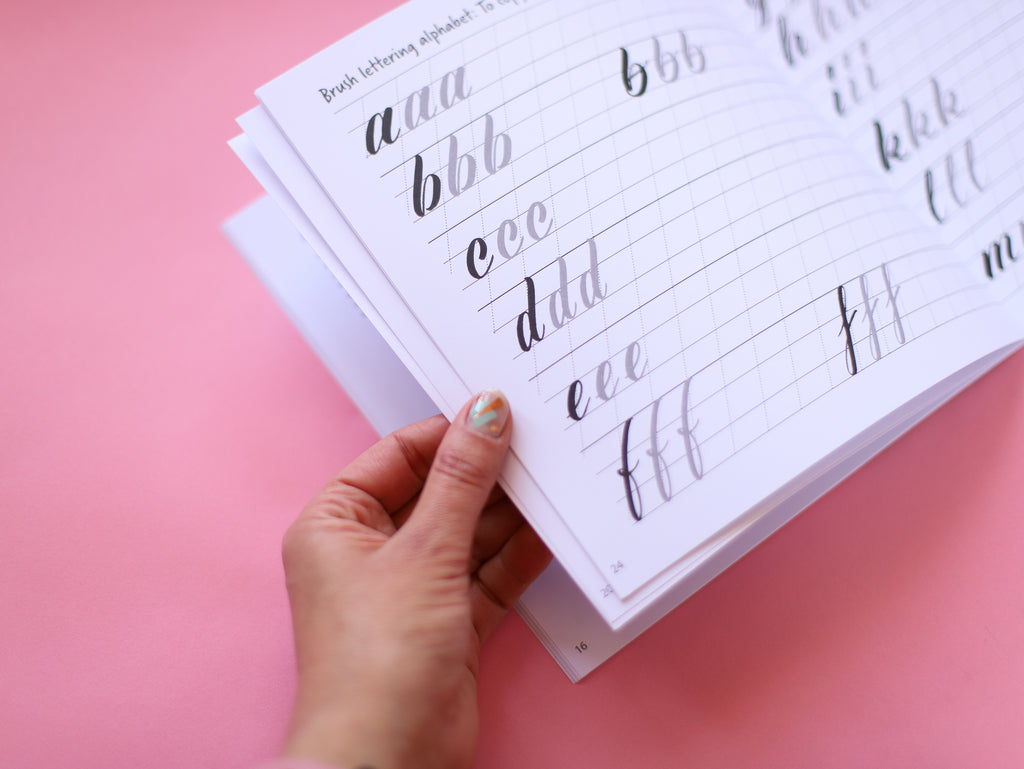 Brush lettering alphabet: To copy
a a a
b b b b b b
c c c
d d d
e e e
f f f f f f
24
20
16
h h h
i i i
k k k
l l l
m